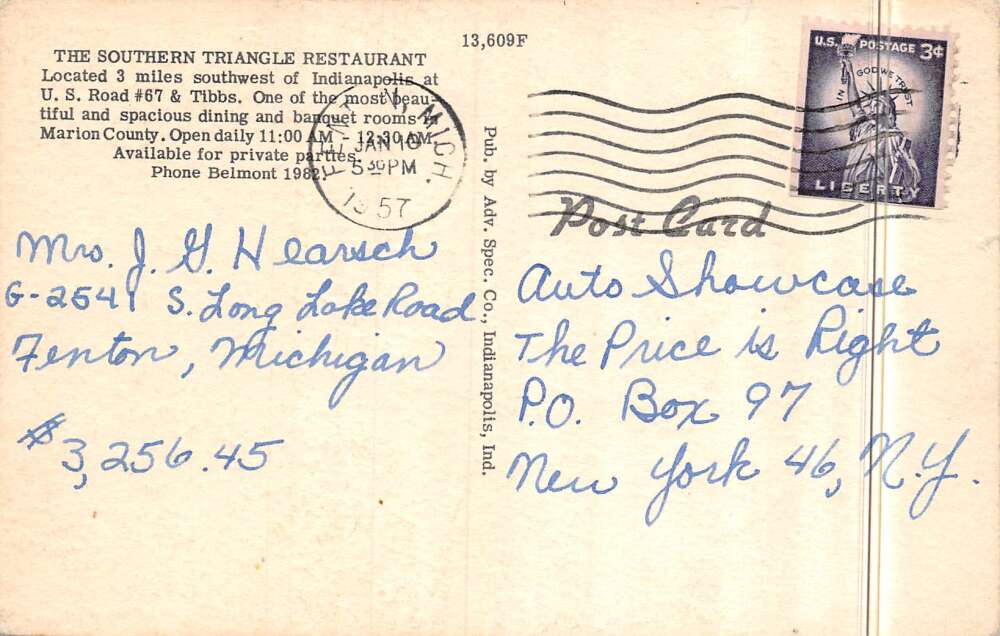 13,609F
THE SOUTHERN TRIANGLE RESTAURANT
Located 3 miles southwest of Indianapolis at
U. S. Road #67 & Tibbs. One of the most beau-
tiful and spacious dining and banquet rooms in
Marion County. Open daily 11:00 AM - 12:30 AM.
Available for private parties.
Phone Belmont 1982
FENTON, MICH.
JAN 10
5 30 PM
1957
U.S. POSTAGE 3¢
IN GOD WE TRUST
LIBERTY
Post Card
Pub. by Adv. Spec. Co., Indianapolis, Ind.
Mrs. J. G. Hearsch
G-2541 S. Long Lake Road
Fenton, Michigan
$3,256.45
Auto Showcase
The Price is Right
P.O. Box 97
New York 46, N.Y.